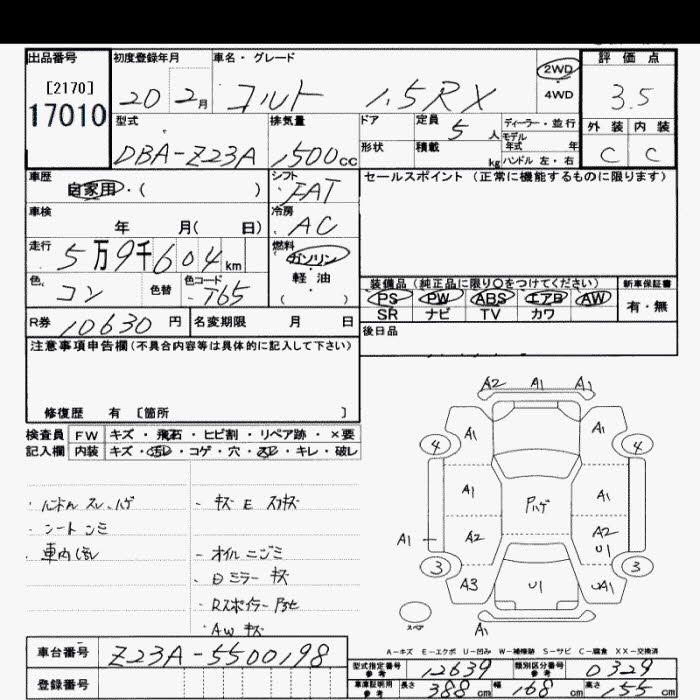 出品番号 初度登録年月 車名・グレード 2WD 評価点
[2170] 20 2月 コルト 1.5RX 4WD 3.5
17010
型式 排気量 ドア 定員 5人 ディーラー・並行 外装 内装
DBA-Z23A 1500cc 形状 積載 kg モデル年式 年 C C
ハンドル 左・右
車歴 シフト セールスポイント(正常に機能するものに限ります)
自家用・( ) FAT
車検 冷房
年 月( 日) AC
走行 燃料
5万9千604km ガソリン
色 色替 色コード 軽油 装備品(純正品に限り○をつけてください) 新車保証書
コン T65 ( ・ ) PS PW ABS エアB AW 有・無
SR ナビ TV カワ
R券 10630円 名変期限 月 日 後日品
注意事項申告欄(不具合内容等は具体的に記入して下さい)
修復歴 有 [箇所 ]
検査員 FW キズ・飛石・ヒビ割・リペア跡・×要
記入欄 内装 キズ・汚レ・コゲ・穴・スレ・キレ・破レ
A2 A1 A1
4 A1 A1 4
A1 Pハゲ A1
A1 A2 A2 U1
3 3
A3 U1 UA1
スペア A1
・ハンドル スレ、ハゲ
・シート シミ
・車内 汚レ
・オイル ニジミ
・ミラー キズ
・AW キズ
A-キズ E-エクボ U-凹み W-補修跡 S-サビ C-腐食 XX-交換済
車台番号 Z23A-5500198
型式指定番号 参考 12639 類別区分番号 参考 0329
登録番号
車庫証明用 参考 長さ 388cm 幅 168cm 高さ 155cm